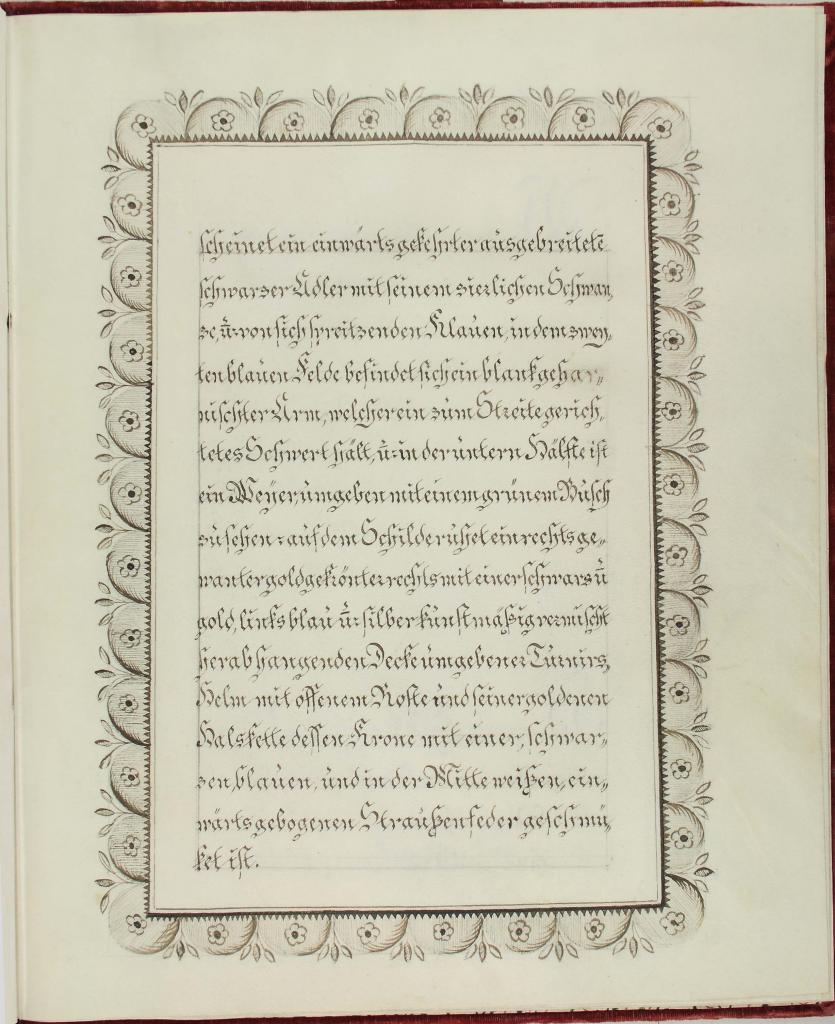 scheinet ein einwärts gekehrter ausgebreitete
schwarzer Adler mit seinem zierlichen Schwan,
ze, ū: von sich spreitzenden Klauen, in dem zwey,
ten blauen Felde befindet sich ein blank gehar,,
nischter Arm, welcher ein zum Streite gerich,
tetes Schwert hält, ū: in der untern Hälfte ist
ein Weyer, umgeben mit einem grünem Busch
zu sehen: auf dem Schilde ruhet ein rechts ge,,
wanter goldgekrönter rechts mit einer schwarz ū
gold, links blau ū: silber kunstmäßig vermischt
herabhangenden Decke umgebener Turnirs,
Helm mit offenem Roste und seiner goldenen
Halskette dessen Krone mit einer, schwar,,
zen, blauen, und in der Mitte weißen, ein,,
wärts gebogenen Straußenfeder geschmü,
ket ist.